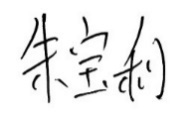 朱宝利